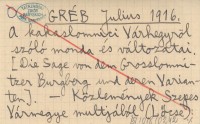 GRÉB Julius 1916.
A kakaslomnici Várhegyről
szóló monda és változatai.
[Die Sage von dem Grosslomni-
tzer Burgberg und deren Varian-
ten]. — Közlemények Szepes
Vármegye multjából (Lőcse)